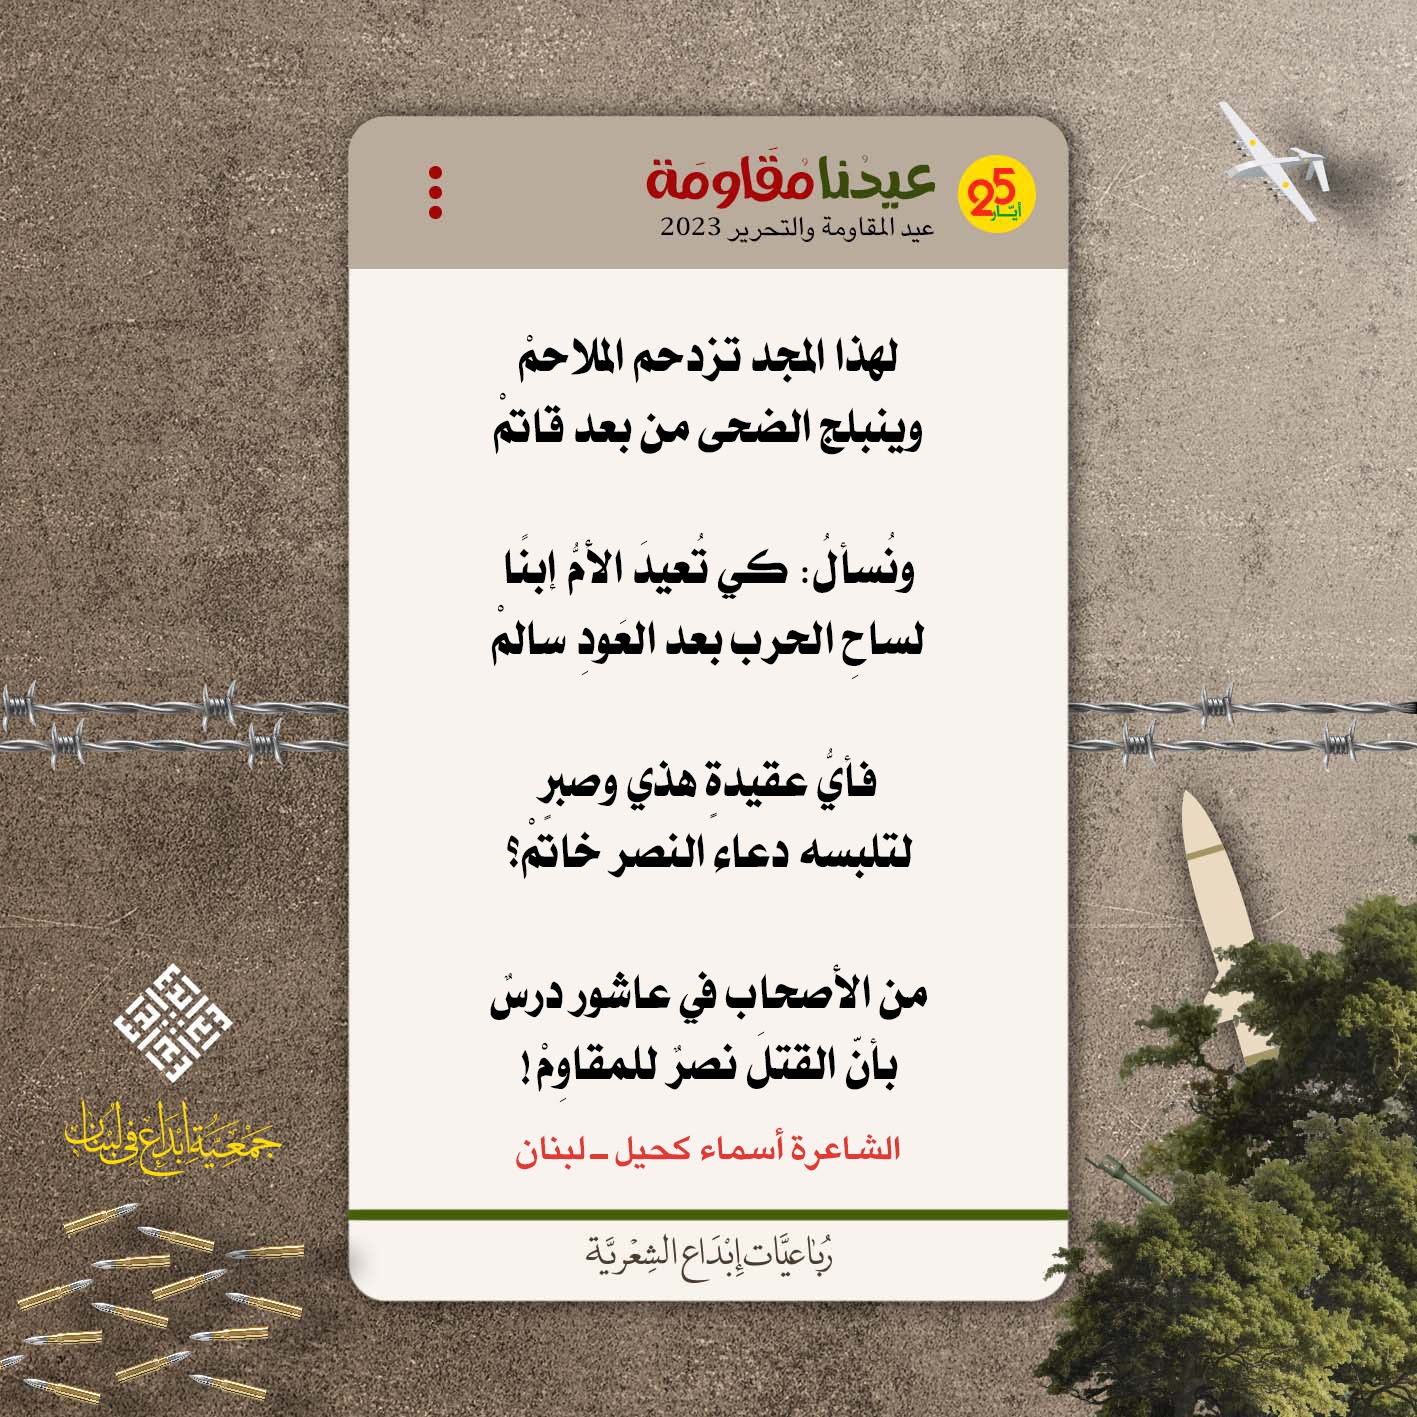 25 أيّار
عيدُنا مُقَاومَة
عيد المقاومة والتحرير 2023
لهذا المجد تزدحم الملاحمْ
وينبلج الضحى من بعد قاتمْ
ونُسألُ: كي تُعيدَ الأمُّ إبنًا
لساحِ الحرب بعد العَودِ سالمْ
فأيُّ عقيدةٍ هذي وصبرٍ
لتلبسه دعاء النصر خاتمْ؟
من الأصحاب في عاشور درسٌ
بأنّ القتلَ نصرٌ للمقاوِمْ!
الشاعرة أسماء كحيل - لبنان
رُبَاعيَّات إِبْدَاع الشِعْريَّة
جَمْعِيَّةُ إبْدَاع فِي لُبْنَان